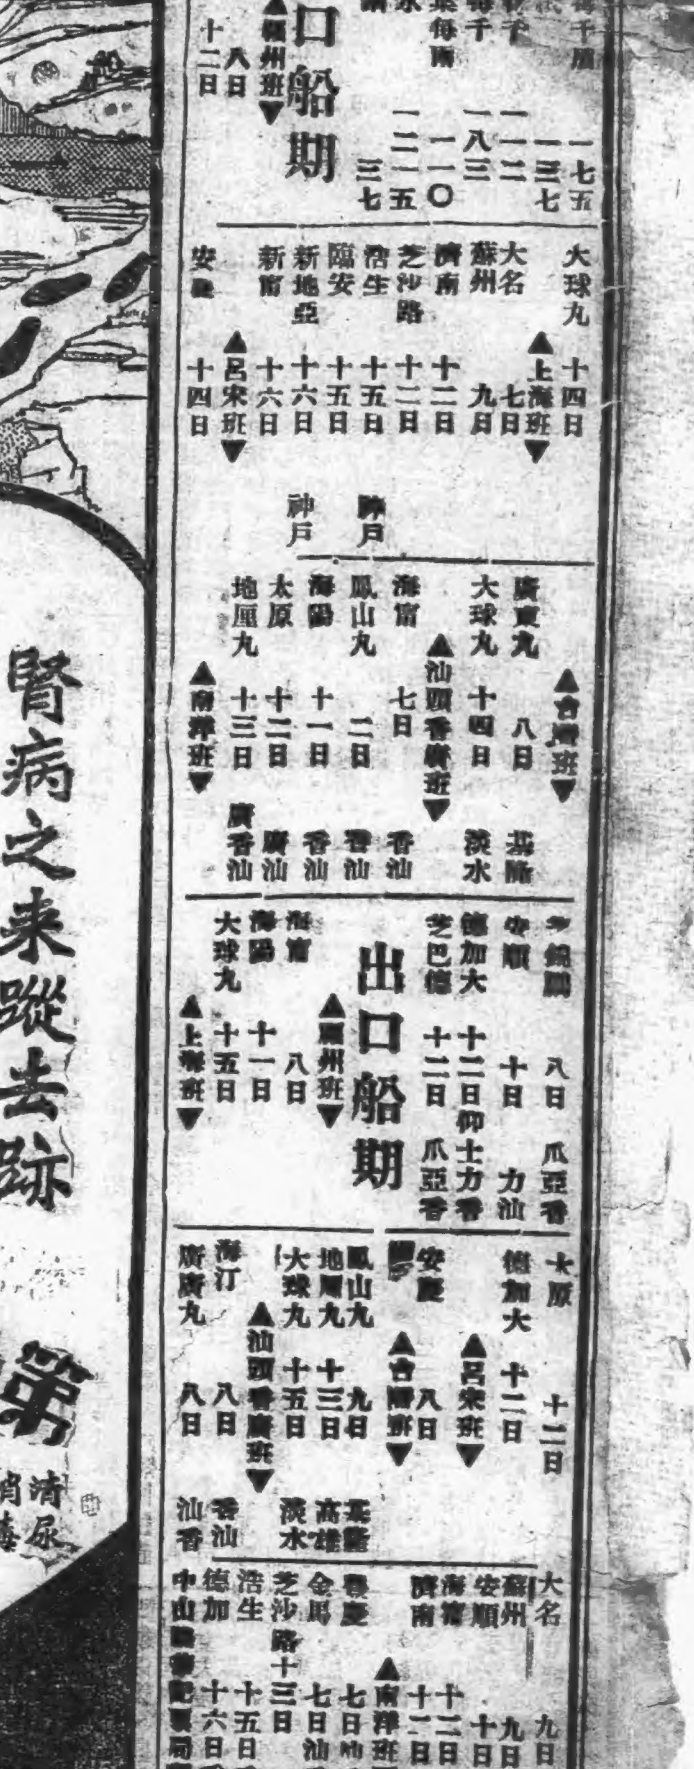 一七五
一三七
一一二
一八三
一一〇
一二一五
三七
口船期
▲福州班▼
八日
十二日
大球丸 十四日
▲上海班▼
大名 七日
蘇州 九日
濟南 十二日
芝沙路 十二日
浩生 十五日
臨安 十五日
新地亞 十六日
新甯 十六日
▲呂宋班▼
安慶 十四日
神戶
神戶
▲台灣班▼
廣東丸 八日 基隆
大球丸 十四日 淡水
▲汕頭香廣班▼
海甯 七日 香汕
鳳山丸 二日 香汕
海陽 十一日 香汕
太原 十二日 廣汕
地厘丸 十三日 廣香汕
▲南洋班▼
八日 爪亞香
安順 十日 力汕
德加大 十二日 仰士力香
芝巴德 十二日 爪亞香
出口船期
▲福州班▼
海甯 八日
海陽 十一日
大球丸 十五日
▲上海班▼
太原 十二日
德加大 十二日
▲呂宋班▼
安慶 八日
▲台灣班▼
鳳山丸 九日 基隆
地厘丸 十三日 高雄
大球丸 十五日 淡水
▲汕頭香廣班▼
海汀 八日 香汕
廣東丸 八日 汕香
大名 九日
蘇州 九日
安順 十日
海甯 十二日
濟南 十二日
▲南洋班
豐慶 七日汕
金馬 七日汕
芝沙路 十三日
浩生 十五日
德加 十六日
中山
腎病之来蹤去跡
第
清尿
消毒